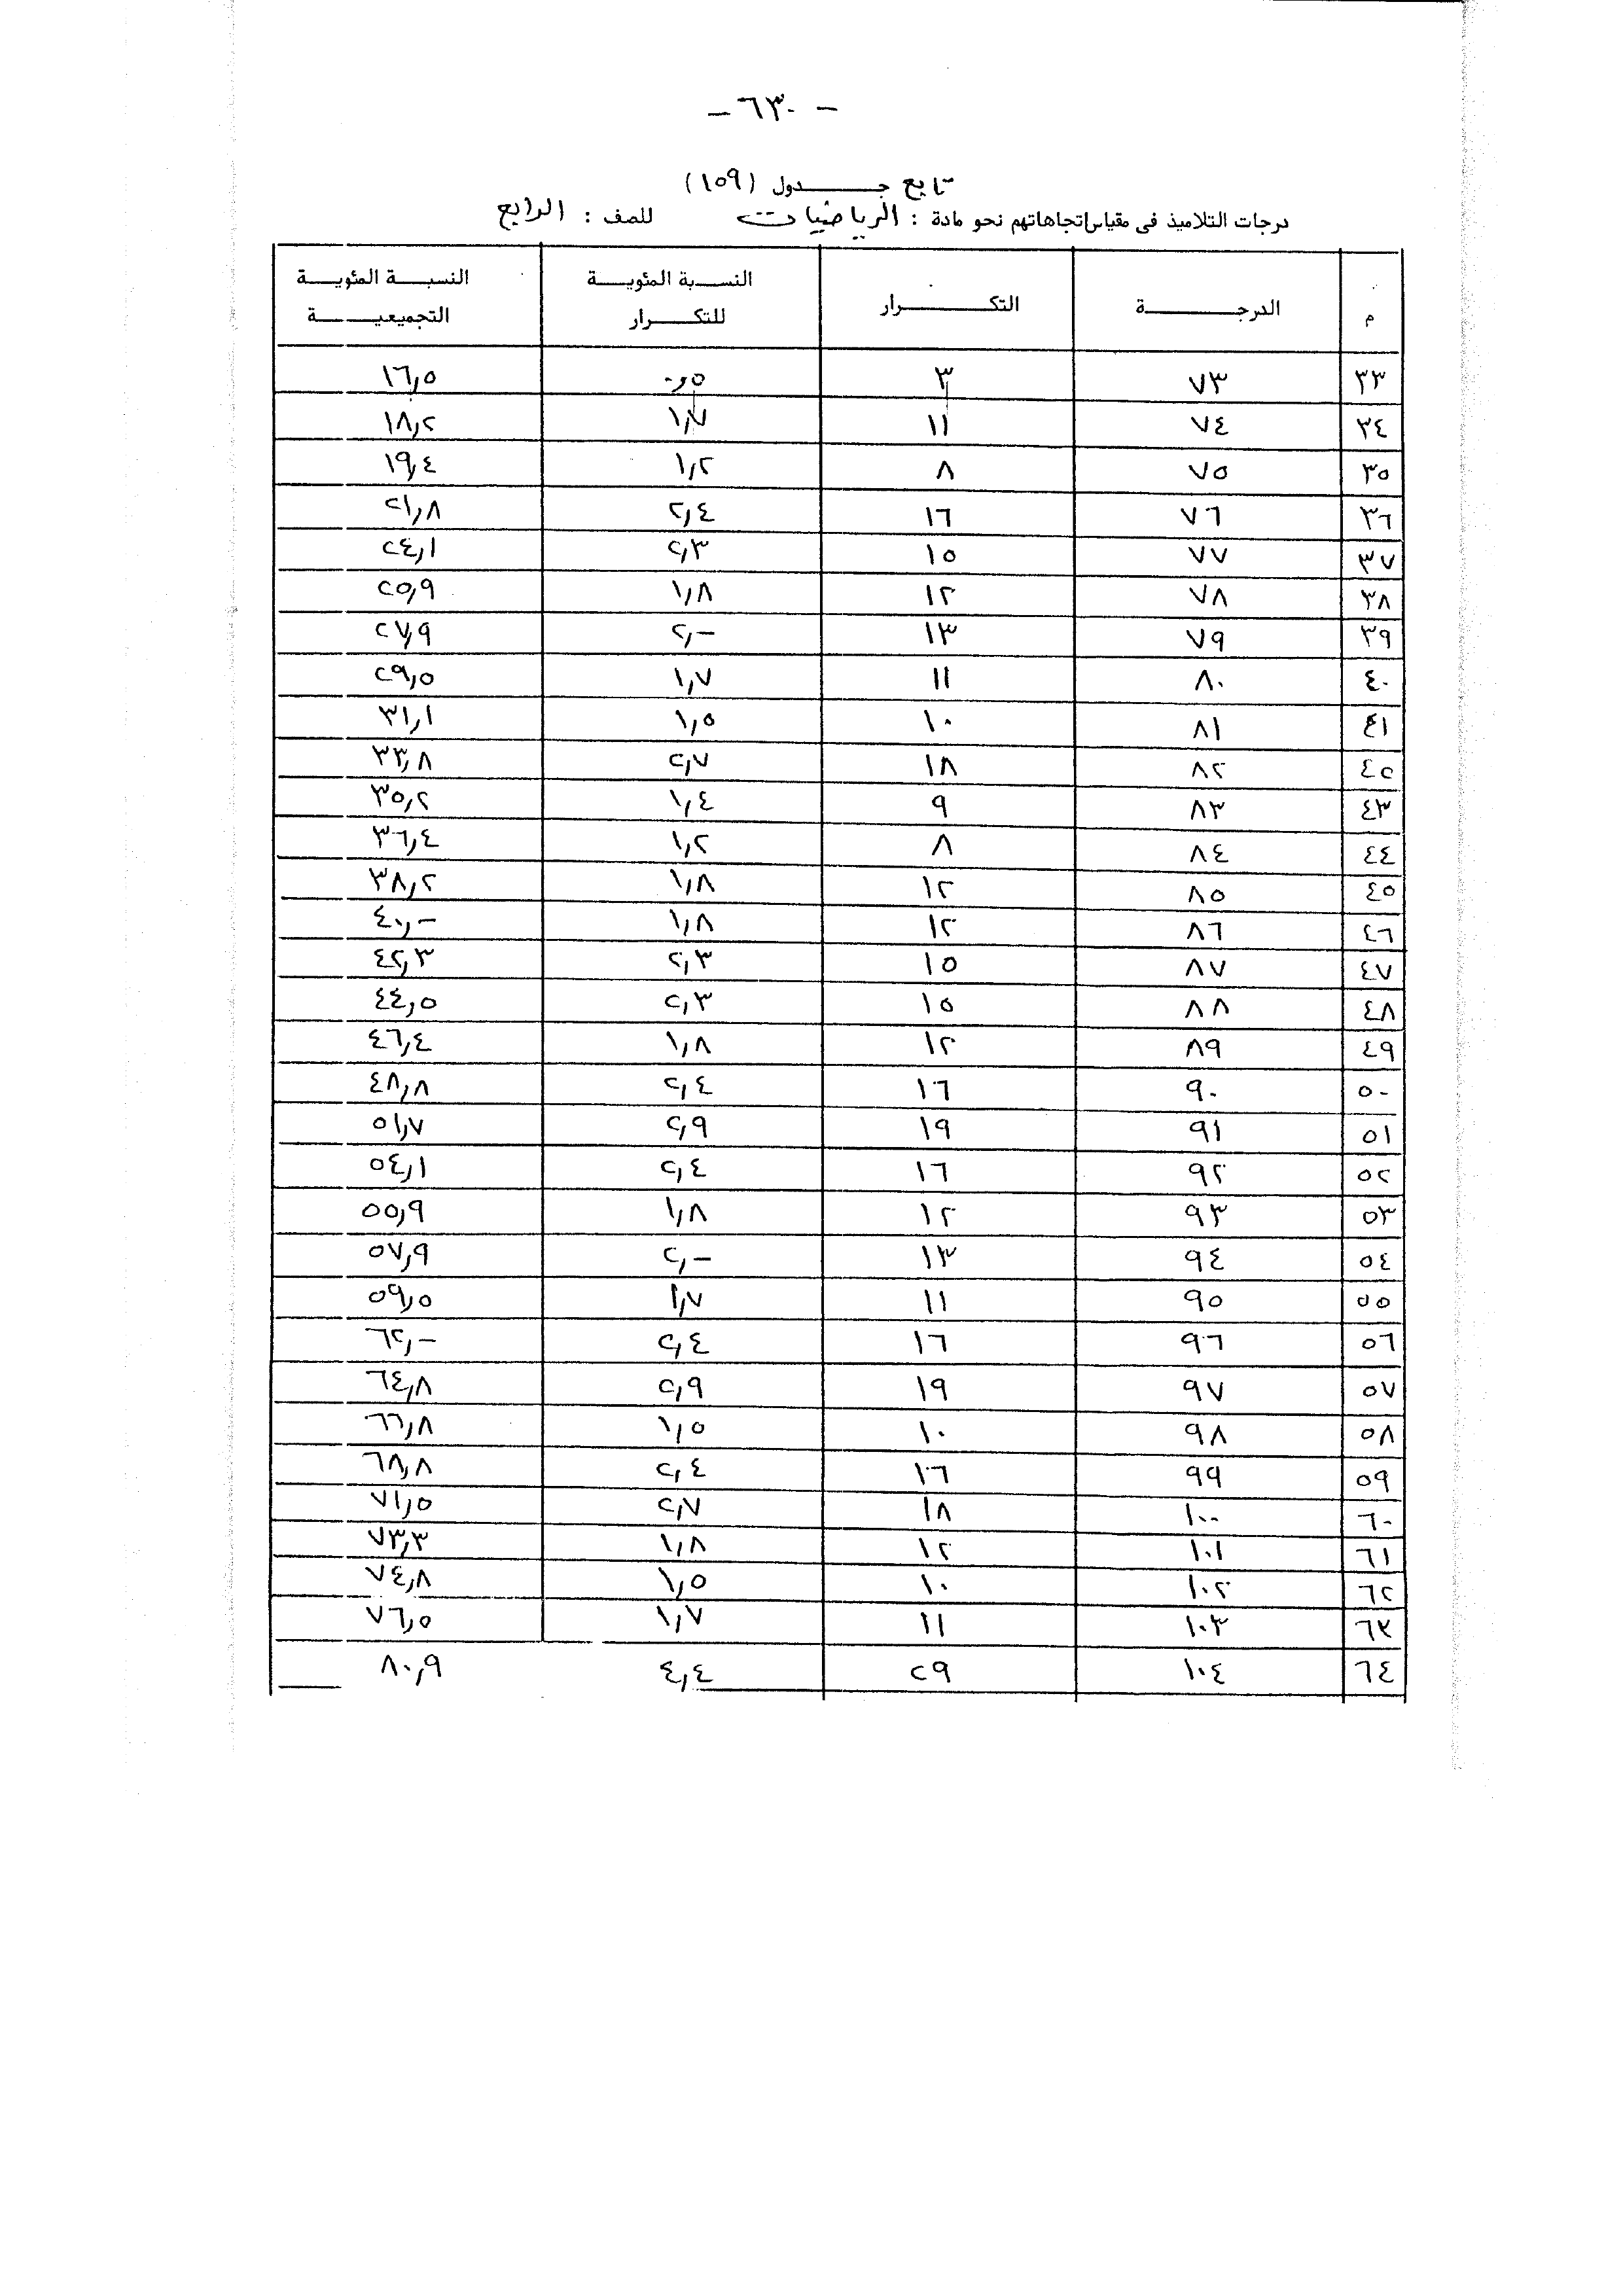 - ٦٣٠ -
تابع جدول (١٥٩)
درجات التلاميذ فى مقياس اتجاهاتهم نحو مادة : الرياضيات للصف : الرابع
م الدرجة التكرار النسبة المئوية للتكرار النسبة المئوية التجميعية
٣٣ ٧٣ ٣ ٠,٥ ١٦,٥
٣٤ ٧٤ ١١ ١,٧ ١٨,٢
٣٥ ٧٥ ٨ ١,٢ ١٩,٤
٣٦ ٧٦ ١٦ ٢,٤ ٢١,٨
٣٧ ٧٧ ١٥ ٢,٣ ٢٤,١
٣٨ ٧٨ ١٢ ١,٨ ٢٥,٩
٣٩ ٧٩ ١٣ ٢,- ٢٧,٩
٤٠ ٨٠ ١١ ١,٧ ٢٩,٥
٤١ ٨١ ١٠ ١,٥ ٣١,١
٤٢ ٨٢ ١٨ ٢,٧ ٣٣,٨
٤٣ ٨٣ ٩ ١,٤ ٣٥,٢
٤٤ ٨٤ ٨ ١,٢ ٣٦,٤
٤٥ ٨٥ ١٢ ١,٨ ٣٨,٢
٤٦ ٨٦ ١٢ ١,٨ ٤٠,-
٤٧ ٨٧ ١٥ ٢,٣ ٤٢,٣
٤٨ ٨٨ ١٥ ٢,٣ ٤٤,٥
٤٩ ٨٩ ١٢ ١,٨ ٤٦,٤
٥٠ ٩٠ ١٦ ٢,٤ ٤٨,٨
٥١ ٩١ ١٩ ٢,٩ ٥١,٧
٥٢ ٩٢ ١٦ ٢,٤ ٥٤,١
٥٣ ٩٣ ١٢ ١,٨ ٥٥,٩
٥٤ ٩٤ ١٣ ٢,- ٥٧,٩
٥٥ ٩٥ ١١ ١,٧ ٥٩,٥
٥٦ ٩٦ ١٦ ٢,٤ ٦٢,-
٥٧ ٩٧ ١٩ ٢,٩ ٦٤,٨
٥٨ ٩٨ ١٠ ١,٥ ٦٦,٨
٥٩ ٩٩ ١٦ ٢,٤ ٦٨,٨
٦٠ ١٠٠ ١٨ ٢,٧ ٧١,٥
٦١ ١٠١ ١٢ ١,٨ ٧٣,٣
٦٢ ١٠٢ ١٠ ١,٥ ٧٤,٨
٦٣ ١٠٣ ١١ ١,٧ ٧٦,٥
٦٤ ١٠٤ ٢٩ ٤,٤ ٨٠,٩